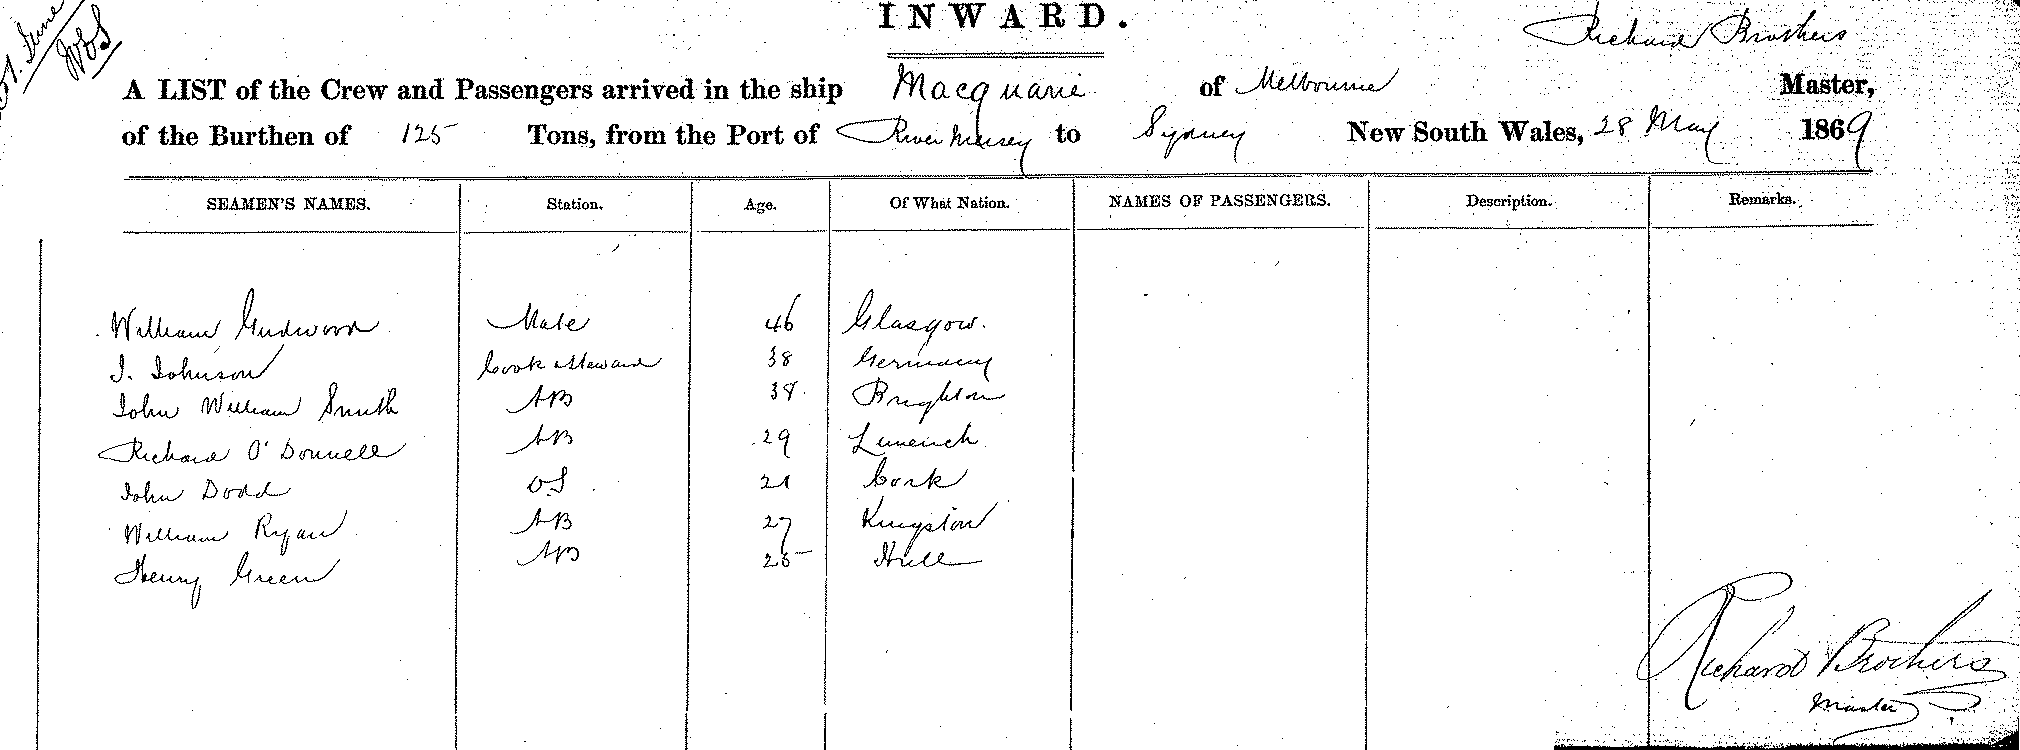 June
WES
INWARD.
Richard Brothers
A LIST of the Crew and Passengers arrived in the ship Macquarie of Melbourne Master,
of the Burthen of 125 Tons, from the Port of River Mersey to Sydney New South Wales, 28 May 1869
SEAMEN'S NAMES. Station. Age. Of What Nation. NAMES OF PASSENGERS. Description. Remarks.
William Mate 46 Glasgow.
J. Johnson Cook & Steward 38 Germany
John William Smith AB 38 Brighton
Richard O'Donnell AB 29 Limerick
John Dodd OS 21 Cork
William Ryan AB 27 Kingston
Henry Green AB 25 Hull
Richard Brothers
Master